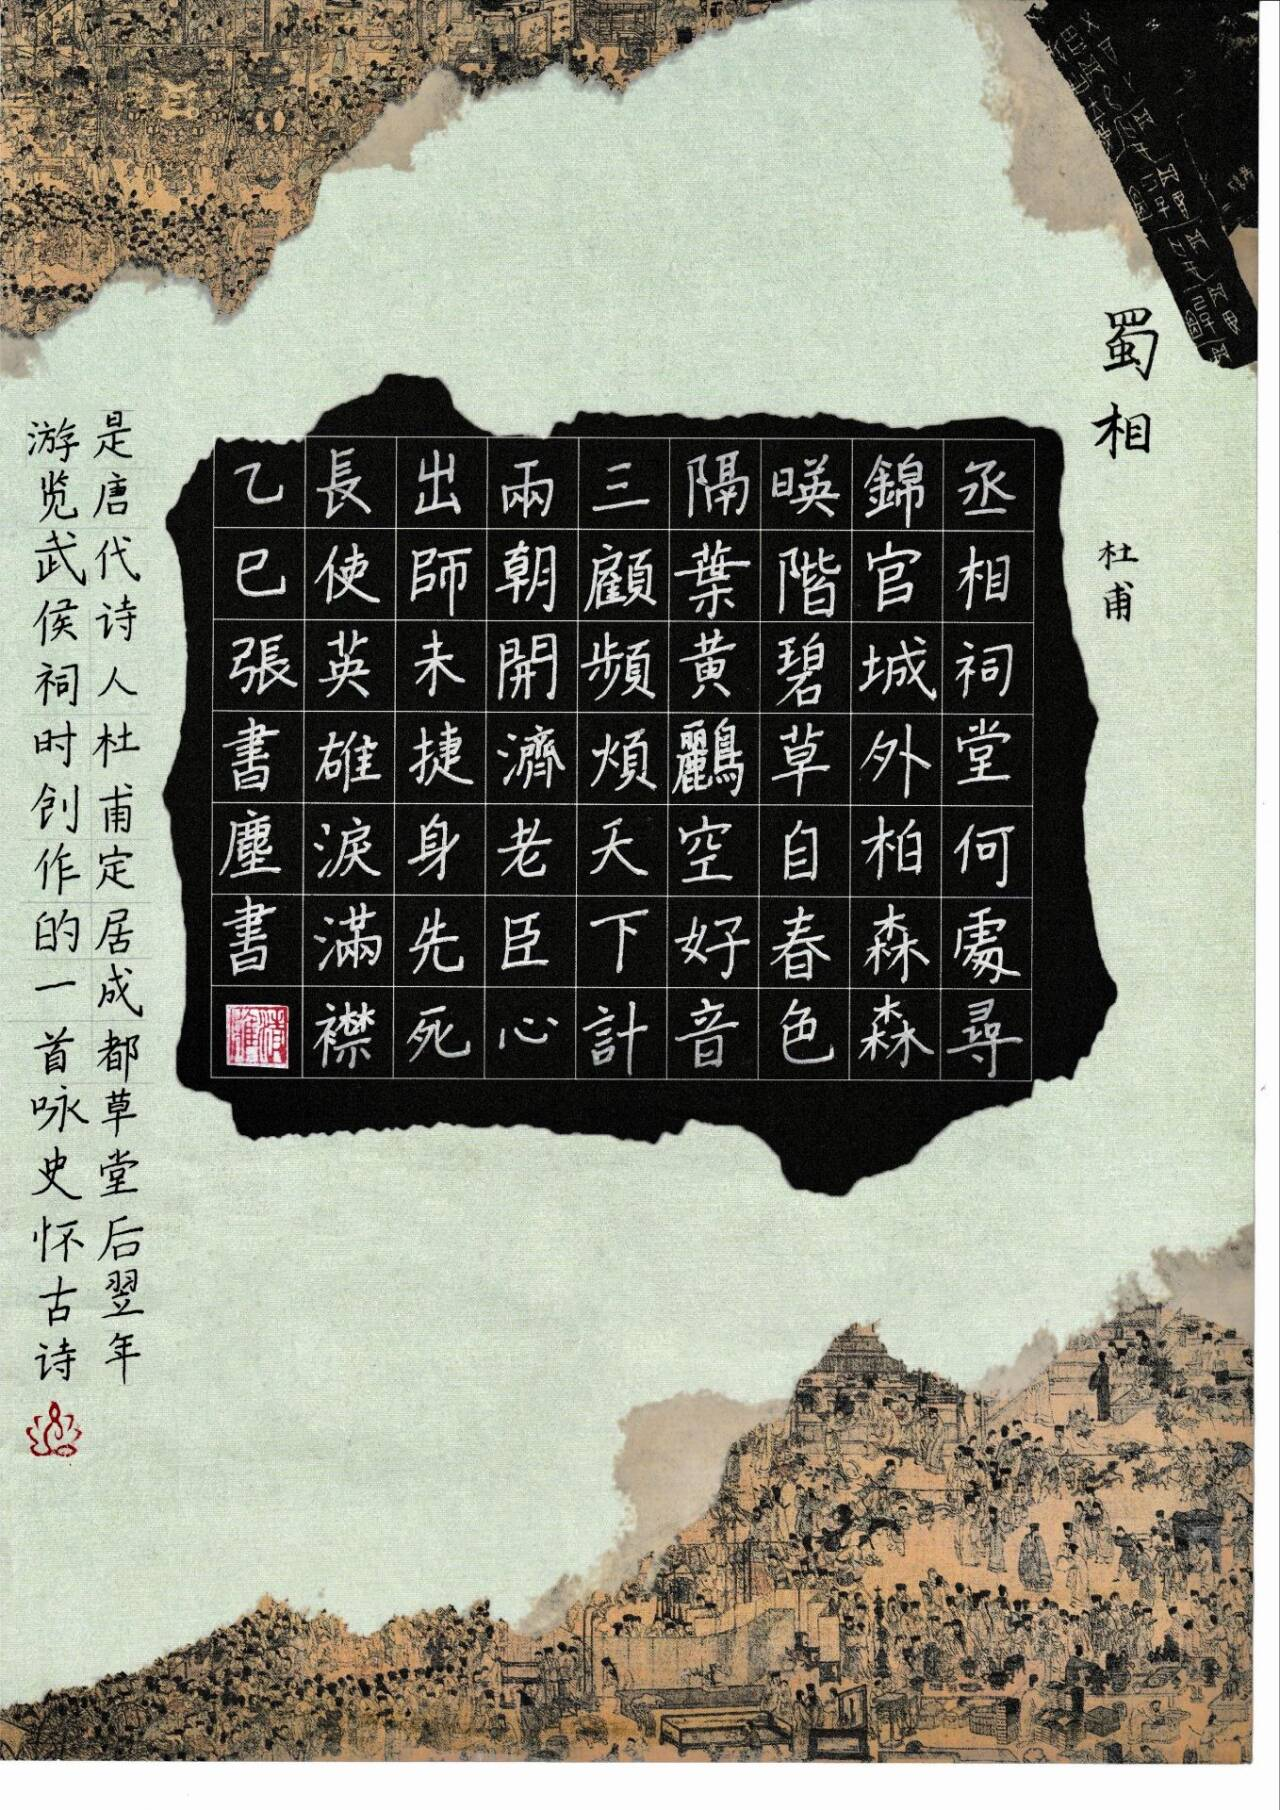 蜀相
杜甫
丞相祠堂何處尋
錦官城外柏森森
暎階碧草自春色
隔葉黃鸝空好音
三顧頻煩天下計
兩朝開濟老臣心
出師未捷身先死
長使英雄淚滿襟
乙巳張書塵書
是唐代诗人杜甫定居成都草堂后翌年
游览武侯祠时创作的一首咏史怀古诗